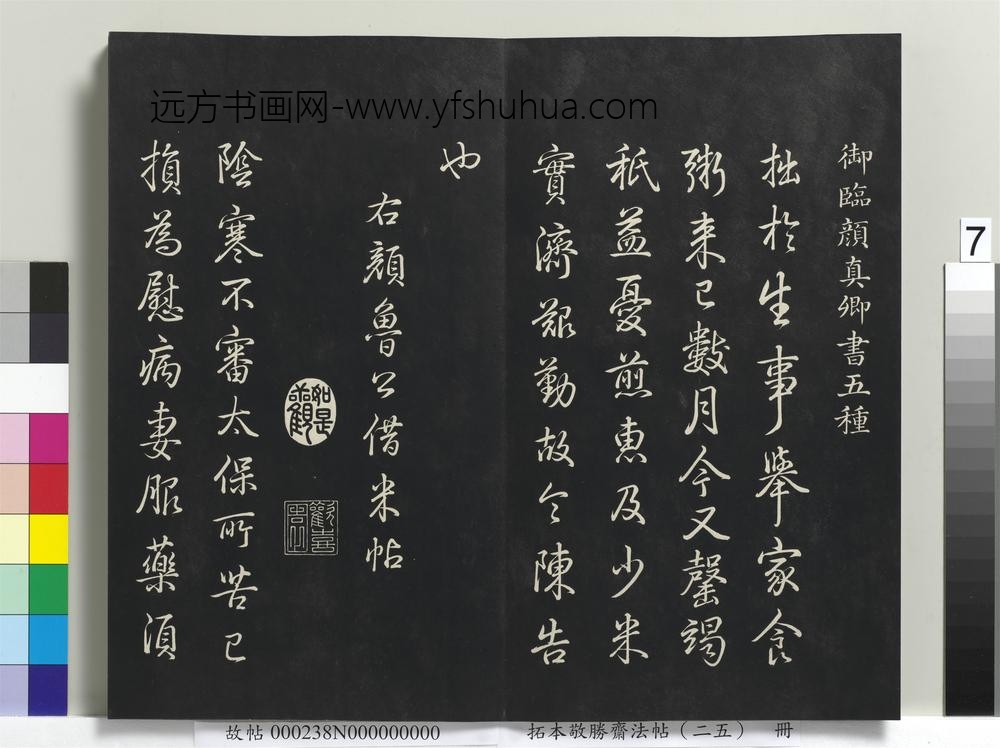 远方书画网-www.yfshuhua.com
御臨顔真卿書五種
拙於生事舉家食
粥来已數月今又罄竭
秖益憂煎惠及少米
實濟艱勤故令陳告
也
右顔魯公借米帖
如是觀
陰寒不審太保所苦已
損為慰病妻服藥須
7
故帖 000238N000000000
拓本敬勝齋法帖（二五） 冊